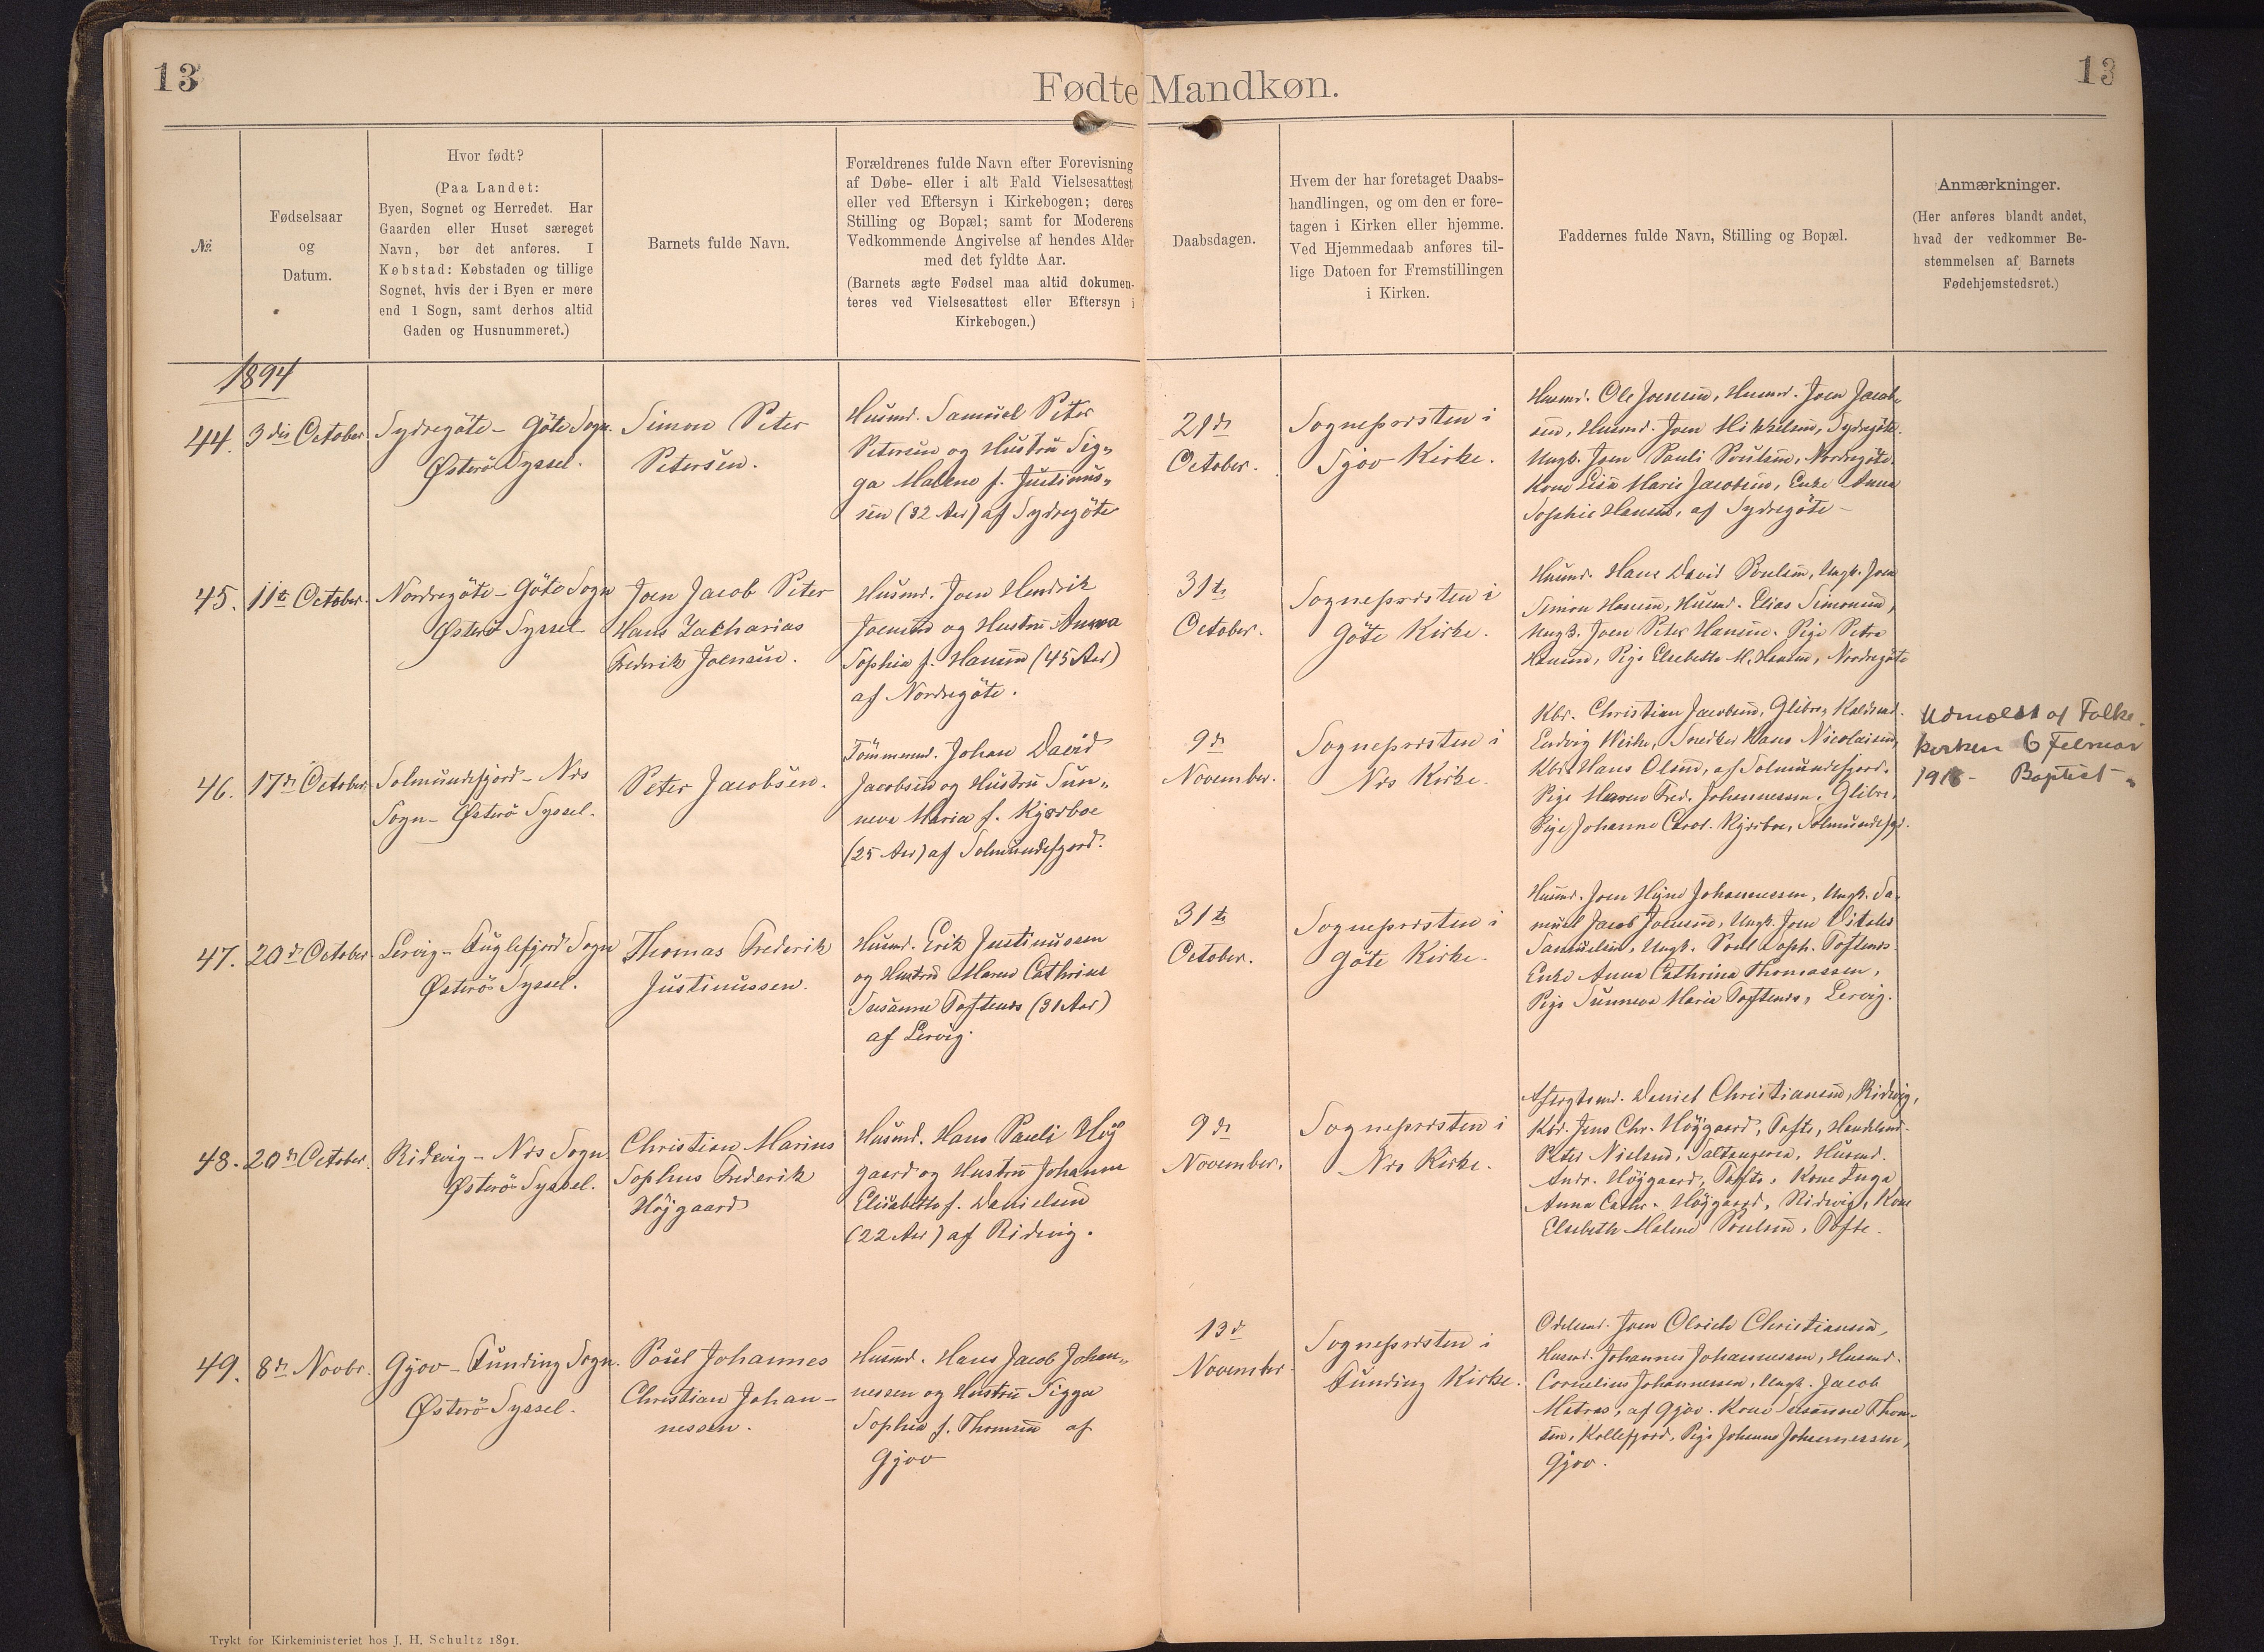 13
Fødte Mandkøn.
13
№
Fødselsaar
og
Datum.
Hvor født?
(Paa Landet:
Byen, Sognet og Herredet. Har
Gaarden eller Huset særeget
Navn, bør det anføres. I
Købstad: Købstaden og tillige
Sognet, hvis der i Byen er mere
end 1 Sogn, samt derhos altid
Gaden og Husnummeret.)
Barnets fulde Navn.
Forældrenes fulde Navn efter Forevisning
af Døbe- eller i alt Fald Vielsesattest
eller ved Eftersyn i Kirkebogen; deres
Stilling og Bopæl; samt for Moderens
Vedkommende Angivelse af hendes Alder
med det fyldte Aar.
(Barnets ægte Fødsel maa altid dokumen-
teres ved Vielsesattest eller Eftersyn i
Kirkebogen.)
Daabsdagen.
Hvem der har foretaget Daabs-
handlingen, og om den er fore-
tagen i Kirken eller hjemme.
Ved Hjemmedaab anføres til-
lige Datoen for Fremstillingen
i Kirken.
Faddernes fulde Navn, Stilling og Bopæl.
Anmærkninger.
(Her anføres blandt andet,
hvad der vedkommer Be-
stemmelsen af Barnets
Fødehjemstedsret.)
1894
44. 3die October.
Sydregöte - Göte Sogn.
Østerö Syssel.
Simon Peter
Petersen.
Husmd. Samuel Peter
Petersen og Hustru Sig„
ga Malene f. Justinus„
sen (32 Aar) af Sydregöte
21de
October.
Sognepræsten i
Gjov Kirke.
Husmd. Ole Joensen, Husmd. Joen Jacob„
sen, Husmd. Joen Mikkelsen, Sydregöte.
Ungk. Joen Pauli Poulsen, Nordregöte.
Kone Lisa Marie Jacobsen, Enke Anna
Sophie Hansen, af Sydregöte -
45. 11te October.
Nordregöte - Göte Sogn
Østerö Syssel
Joen Jacob Peter
Hans Zacharias
Frederik Joensen.
Husmd. Joen Hendrik
Joensen og Hustru Anna
Sophia f. Hansen (45 Aar)
af Nordregöte.
31te
October.
Sognepræsten i
Göte Kirke.
Husmd. Hans David Poulsen, Ungk. Joen
Simon Hansen, Husmd. Elias Simonsen,
Ungk. Joen Peter Hansen. Pige Petra
Hansen, Pige Elsebette M. Hansen, Nordregöte
46. 17de October.
Solmundefjord - Næs
Sogn - Østerö Syssel.
Peter Jacobsen.
Tömmermd. Johan David
Jacobsen og Hustru Sun„
neva Maria f. Kjærboe
(25 Aar) af Solmundefjord.
9de
November.
Sognepræsten i
Næs Kirke.
Kbr. Christian Jacobsen, Glibre,
Ludvig Weihe, Snedker Hans Nicolaisen,
Kbr. Hans Olsen, af Solmundefjord.
Pige Maren Fred. Johannessen, Glibre.
Pige Johanne Carol. Kjærboe, Solmundefjd.
Udmeldt af Folke
kirken 6 Februar
1918 - Baptist -
47. 20de October
Lervig - Fuglefjord Sogn
Østerö Syssel.
Thomas Frederik
Justinussen.
Husmd. Erik Justinussen
og Hustru Maren Cathrine
Susanne Toftenes (31 Aar)
af Lervig.
31te
October.
Sognepræsten i
Göte Kirke.
Husmd. Joen Hejne Johannessen, Ungk. Sa-
muel Jacob Joensen, Ungk. Joen
Samuelsen, Ungk. Poul Soph. Toftenes.
Enke Anna Cathrina Thomassen,
Pige Sunneva Maria Toftenes, Lervig.
48. 20de October.
Ridevig - Næs Sogn
Østerö Syssel.
Christian Marius
Sophus Frederik
Höjgaard
Husmd. Hans Pauli Höj
gaard og Hustru Johanne
Elisabeth f. Danielsen
(22 Aar) af Ridevig.
9de
November.
Sognepræsten i
Næs Kirke.
Aftægtsmd. Daniel Christiansen, Ridevig,
Kbr. Jens Chr. Höjgaard, Tofte, Handelsmd.
Peter Nielsen, Saltangeren, Husmd.
Andr. Höjgaard, Tofte, Kone Inga
Anna Cathr. Höjgaard, Ridevig, Kone
Elsebeth Malene Poulsen, Tofte.
49. 8de Novbr.
Gjov - Funding Sogn.
Østerö Syssel.
Poul Johannes
Christian Johan -
nessen.
Husmd. Hans Jacob Johan„
nessen og Hustru Sigga
Sophia f. Thomsen af
Gjov
13de
November.
Sognepræsten i
Funding Kirke.
Odelsmd. Joen Olrich Christiansen,
Husmd. Johannes Johannessen, Husmd.
Cornelius Johannessen, Ungk. Jacob
Matras, af Gjov. Kone Susanne Thom-
sen, Kollefjord, Pige Johanne Johannessen,
Gjov.
Trykt for Kirkeministeriet hos J. H. Schultz 1891.